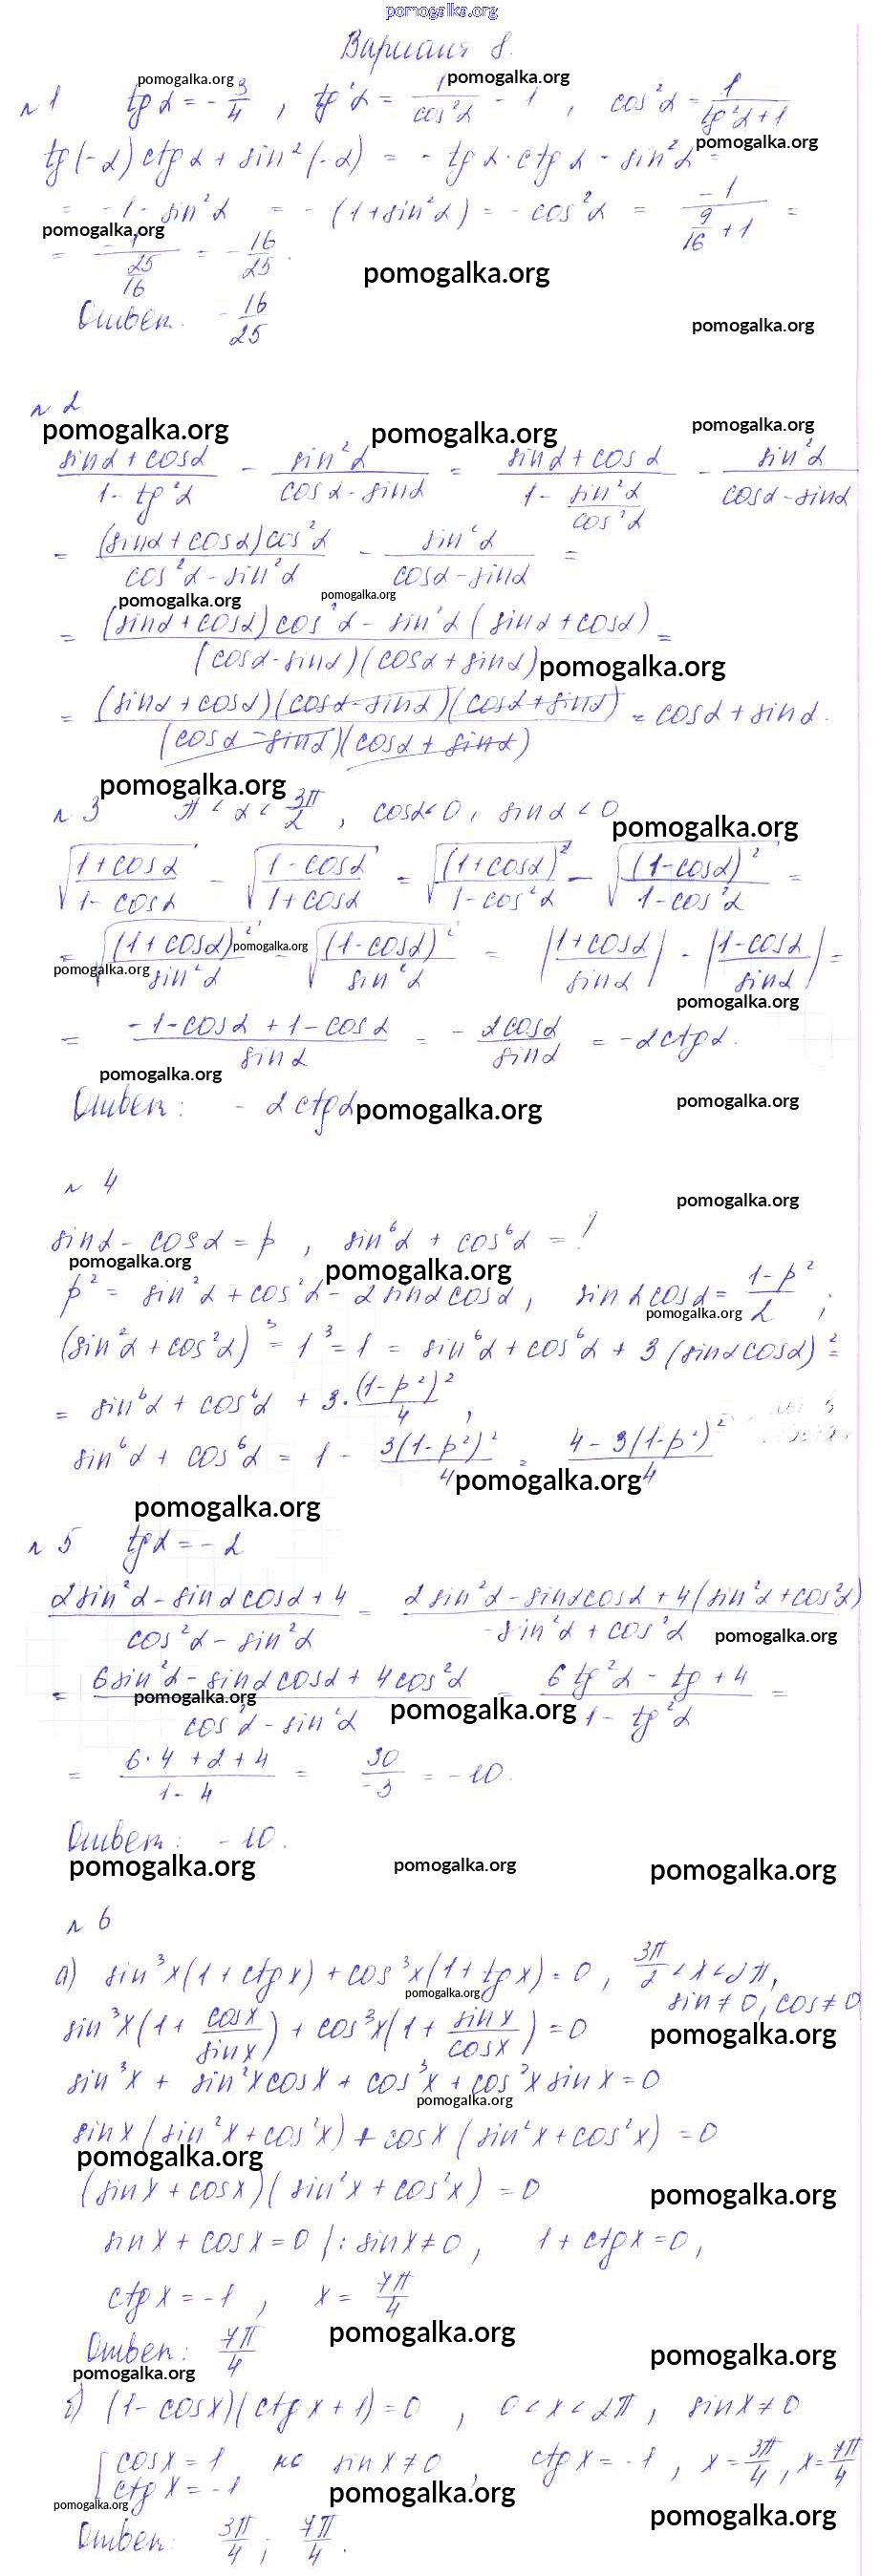 pomogalka.org
Вариант 8.
pomogalka.org pomogalka.org
№1 tg α = -3/4 , tg²α = 1/cos²α - 1 , cos²α = 1/(tg²α+1)
pomogalka.org
tg(-α) ctg α + sin²(-α) = - tg α · ctg α - sin²α =
= -1 - sin²α = - (1+sin²α) = - cos²α = -1/(9/16 + 1) =
pomogalka.org
= -1/(25/16) = -16/25.
pomogalka.org
Ответ. -16/25
pomogalka.org
№2
pomogalka.org pomogalka.org pomogalka.org
(sinα + cosα)/(1 - tg²α) - sin²α/(cosα - sinα) = (sinα + cosα)/(1 - sin²α/cos²α) - sin²α/(cosα - sinα)
= (sinα + cosα)cos²α/(cos²α - sin²α) - sin²α/(cosα - sinα) =
pomogalka.org pomogalka.org
= ((sinα + cosα) cos²α - sin²α (sinα + cosα))/((cosα - sinα)(cosα + sinα)) =
pomogalka.org
= (sinα + cosα)(cosα - sinα)(cosα + sinα)/((cosα - sinα)(cosα + sinα)) = cosα + sinα.
pomogalka.org
№3 π < α < 3π/2 , cosα < 0, sinα < 0
pomogalka.org
√((1+cosα)/(1-cosα)) - √((1-cosα)/(1+cosα)) = √((1+cosα)²/(1-cos²α)) - √((1-cosα)²/(1-cos²α)) =
= √((1+cosα)²/sin²α) - √((1-cosα)²/sin²α) = |(1+cosα)/sinα| - |(1-cosα)/sinα| =
pomogalka.org pomogalka.org
pomogalka.org
= (-1-cosα + 1-cosα)/sinα = - 2cosα/sinα = -2ctgα.
pomogalka.org
Ответ: - 2 ctgα
pomogalka.org pomogalka.org
№4
pomogalka.org
sinα - cosα = p , sin⁶α + cos⁶α = ?
pomogalka.org pomogalka.org
p² = sin²α + cos²α - 2 sinα cosα , sinα cosα = (1-p²)/2 ;
pomogalka.org
(sin²α + cos²α)³ = 1³ = 1 = sin⁶α + cos⁶α + 3 (sinα cosα)² =
= sin⁶α + cos⁶α + 3·(1-p²)²/4 ,
sin⁶α + cos⁶α = 1 - 3(1-p²)²/4 = (4 - 3(1-p²)²)/4
pomogalka.org
pomogalka.org
№5 tgα = -2
(2sin²α - sinα cosα + 4)/(cos²α - sin²α) = (2sin²α - sinα cosα + 4(sin²α + cos²α))/(-sin²α + cos²α)
pomogalka.org
= (6sin²α - sinα cosα + 4cos²α)/(cos²α - sin²α) = (6tg²α - tg + 4)/(1 - tg²α) =
pomogalka.org pomogalka.org
= (6·4 + 2 + 4)/(1 - 4) = 30/-3 = -10.
Ответ: -10.
pomogalka.org pomogalka.org pomogalka.org
№6
а) sin³x(1+ctgx) + cos³x(1+tgx) = 0 , 3π/2 < x < 2π,
pomogalka.org
sin ≠ 0, cos ≠ 0
sin³x(1 + cosx/sinx) + cos³x(1 + sinx/cosx) = 0
pomogalka.org
sin³x + sin²x cosx + cos³x + cos²x sinx = 0
pomogalka.org
sinx (sin²x + cos²x) + cosx (sin²x + cos²x) = 0
pomogalka.org
(sinx + cosx)(sin²x + cos²x) = 0
pomogalka.org
sinx + cosx = 0 |: sinx ≠ 0, 1 + ctgx = 0,
ctgx = -1 , x = 7π/4
pomogalka.org
Ответ: 7π/4
pomogalka.org
pomogalka.org
б) (1 - cosx)(ctgx + 1) = 0 , 0 < x < 2π , sinx ≠ 0
[ cosx = 1 но sinx ≠ 0 , ctgx = -1 , x = 3π/4 , x = 7π/4
ctgx = -1
pomogalka.org pomogalka.org
pomogalka.org
Ответ: 3π/4 ; 7π/4.